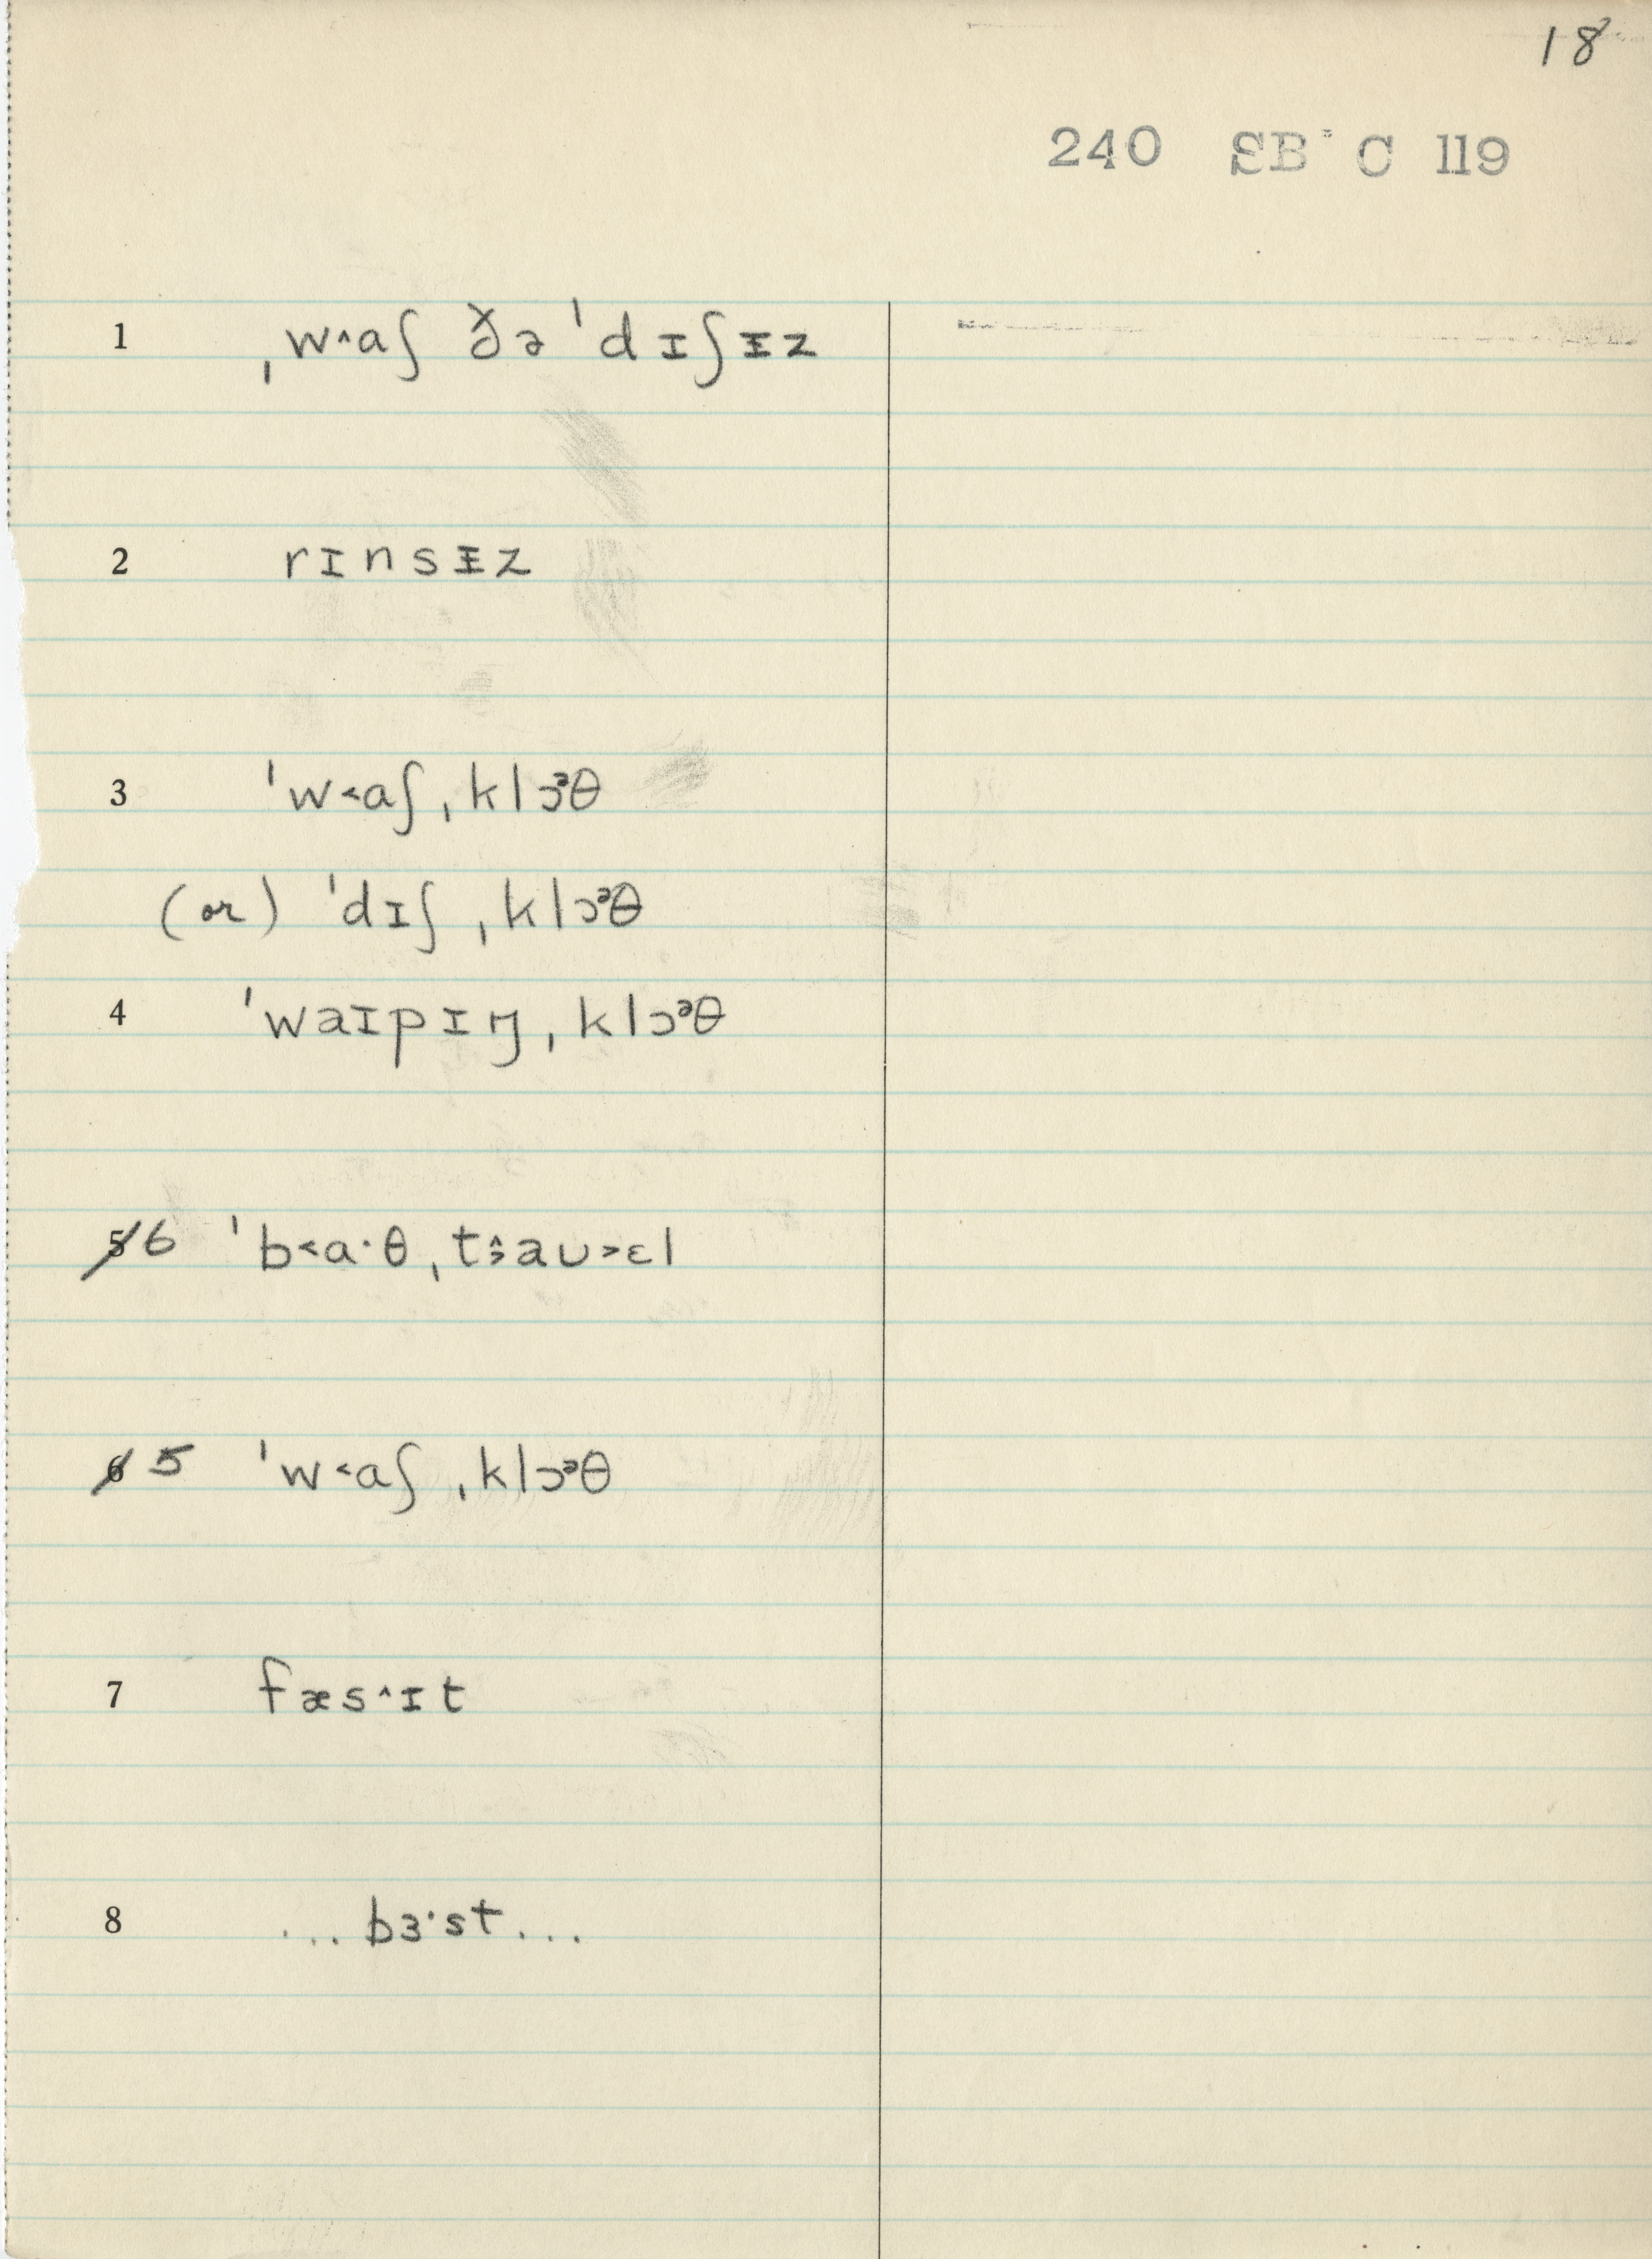 18
240 SB C 119
1 ˌw˄aʃ ðə ˈdɪʃɪ̵z
2 rɪnsɪ̵z
3 ˈw˂aʃˌklɔᵊθ
(or) ˈdɪʃˌklɔᵊθ
4 ˈwaɪpɪŋˌklɔᵊθ
5 6 ˈb˂a·θˌt˄˃aʊ˃ɛl
6 5 ˈw˂aʃˌklɔᵊθ
7 fæs˄ɪt
8 ...bɜ·st...